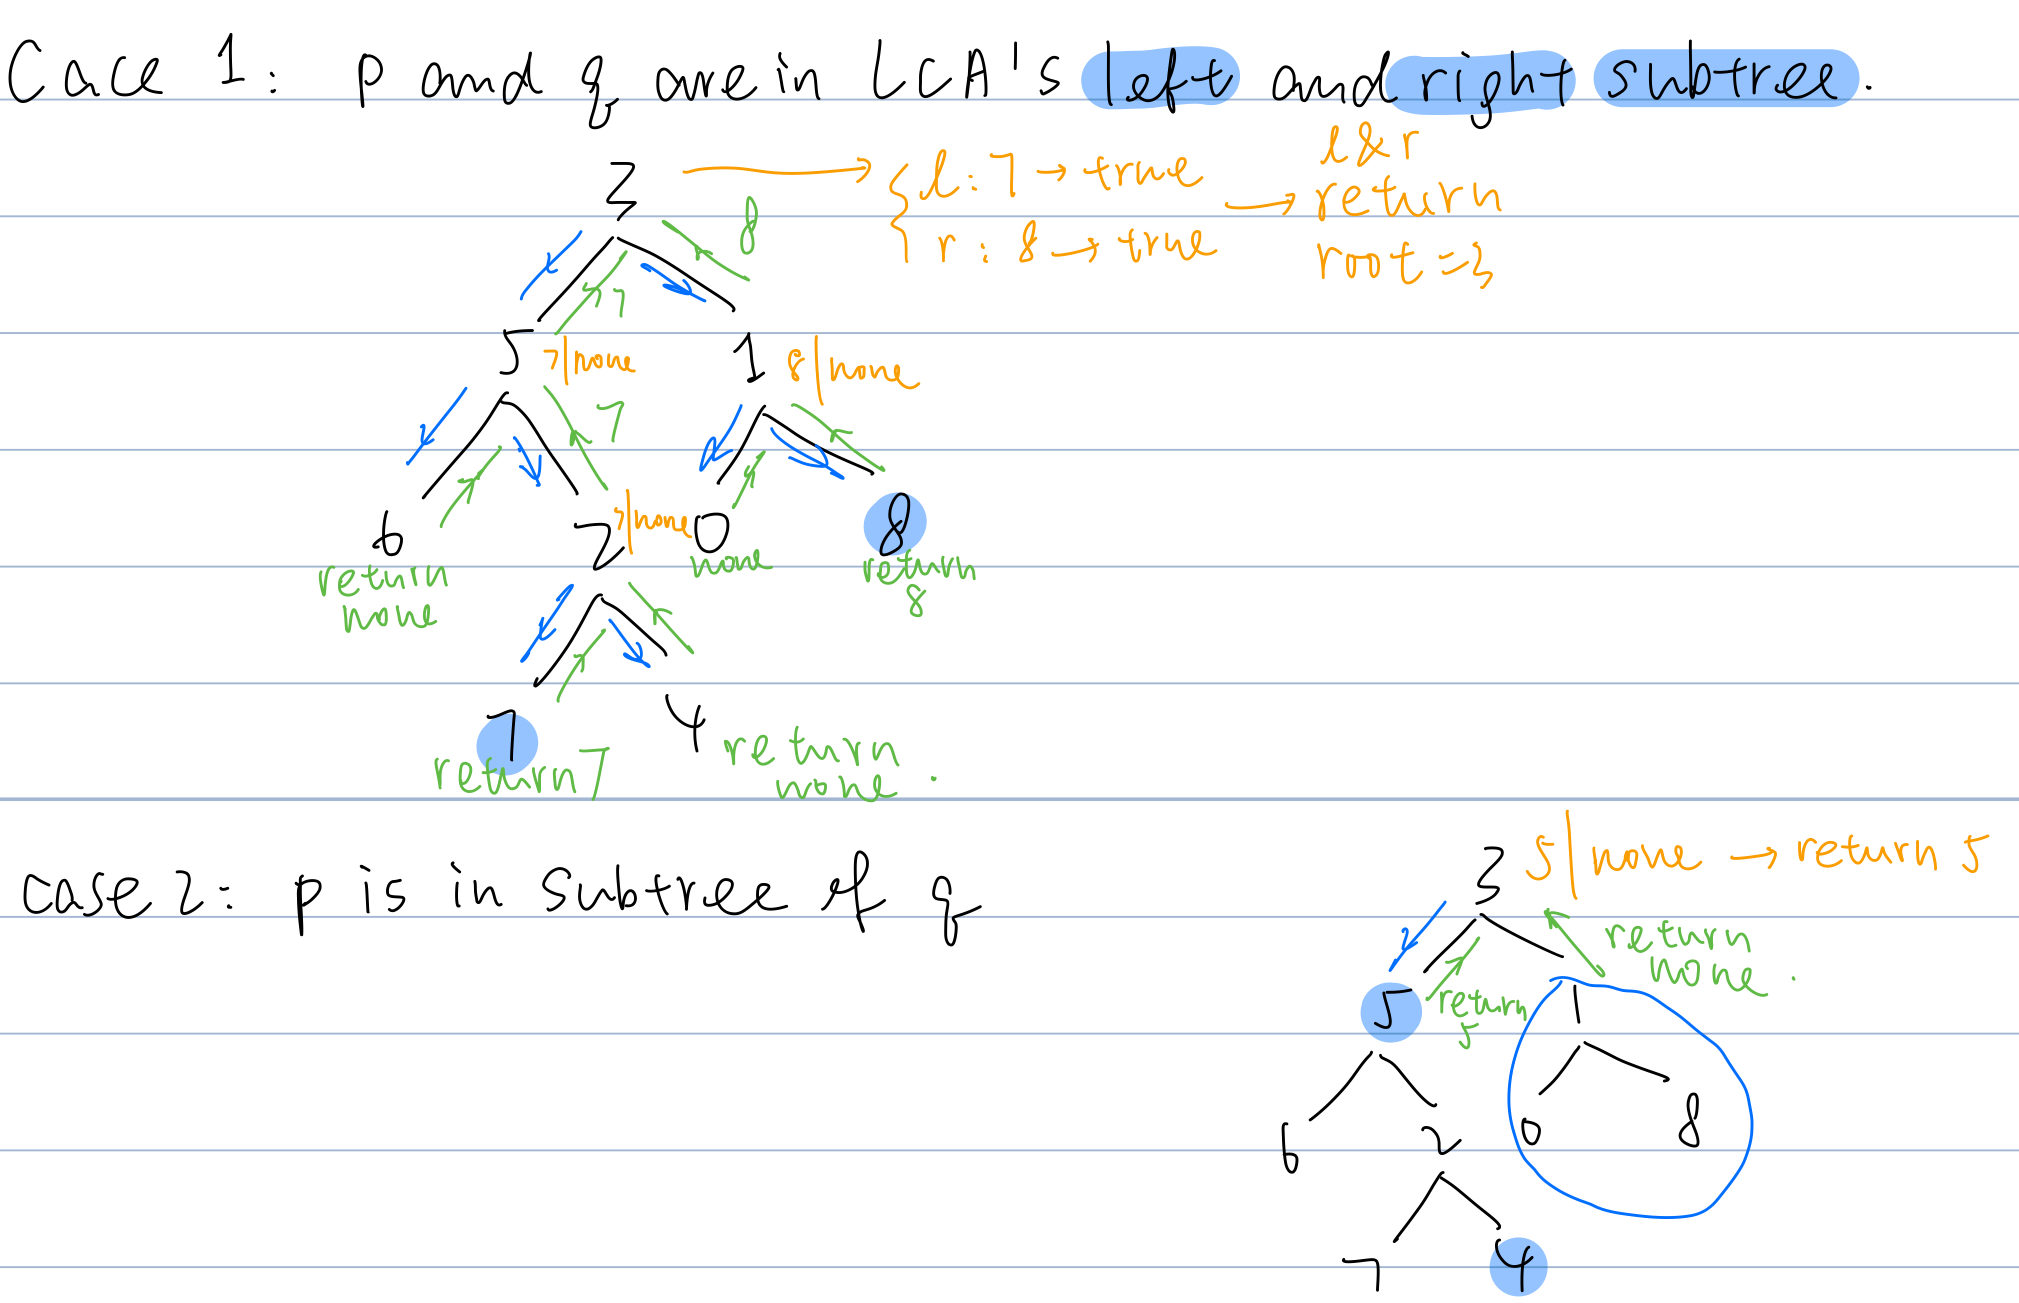 Cace 1: p and q are in LCA's left and right subtree.
l & r
3 → { l: 7 → true → return
8
r: 8 → true root = 3
7
5 7|none 1 8|none
7
6 2 7|none 0 8
return none return
none 8
7 4 return
return 7 none.
case 2: p is in subtree of q
3 5|none → return 5
return
none.
5 return 1
5
6 2 0 8
7 4